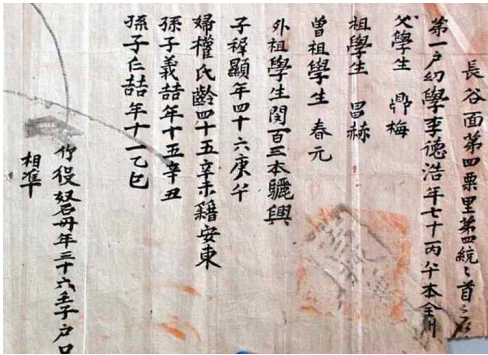 長谷面第四栗里第四統統首之石
第一戶幼學李德浩年七十丙午本全州
父學生 鼎梅
祖學生 昌赫
曾祖學生 春元
外祖學生閔百三本驪興
子稺顯年四十六庚午
婦權氏齡四十五辛未籍安東
孫子義喆年十五辛丑
孫子仁喆年十一乙巳
仰役奴召丹年三十六壬子戶口
相準